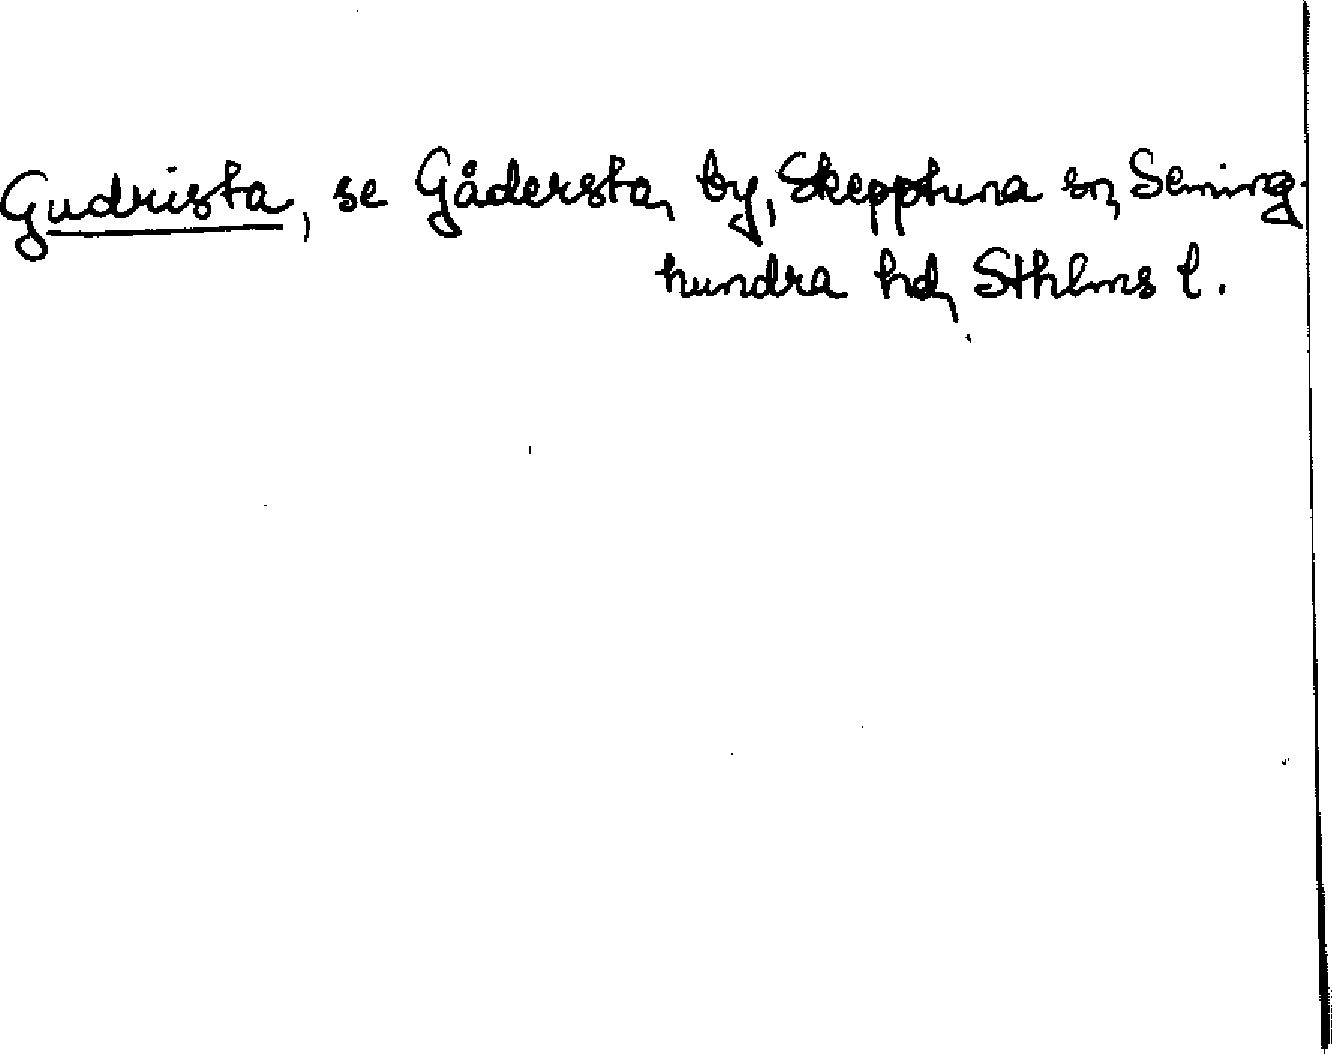 Gudrista, se Gådersta, by, Skepptuna sn, Seming-
hundra hd, Sthlms l.